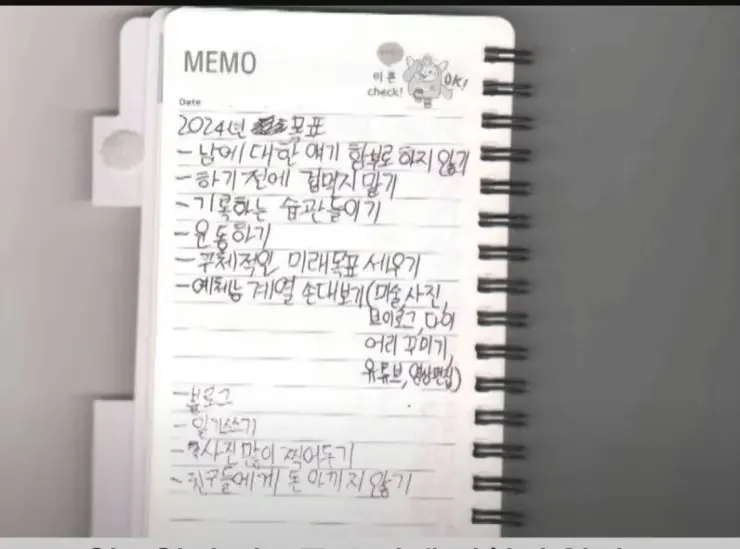 MEMO
비콘
check!
OK!
Date
2024년 목표
- 남에 대한 얘기 함부로 하지 않기
- 하기 전에 겁먹지 말기
- 기록하는 습관들이기
- 운동하기
- 구체적인 미래목표 세우기
- 예체능 계열 손대보기(미술,사진,
브이로그, 다이
어리 꾸미기,
유튜브, 영상편집)
- 블로그
- 일기쓰기
- 사진 많이 찍어두기
- 친구들에게 돈 아끼지 않기